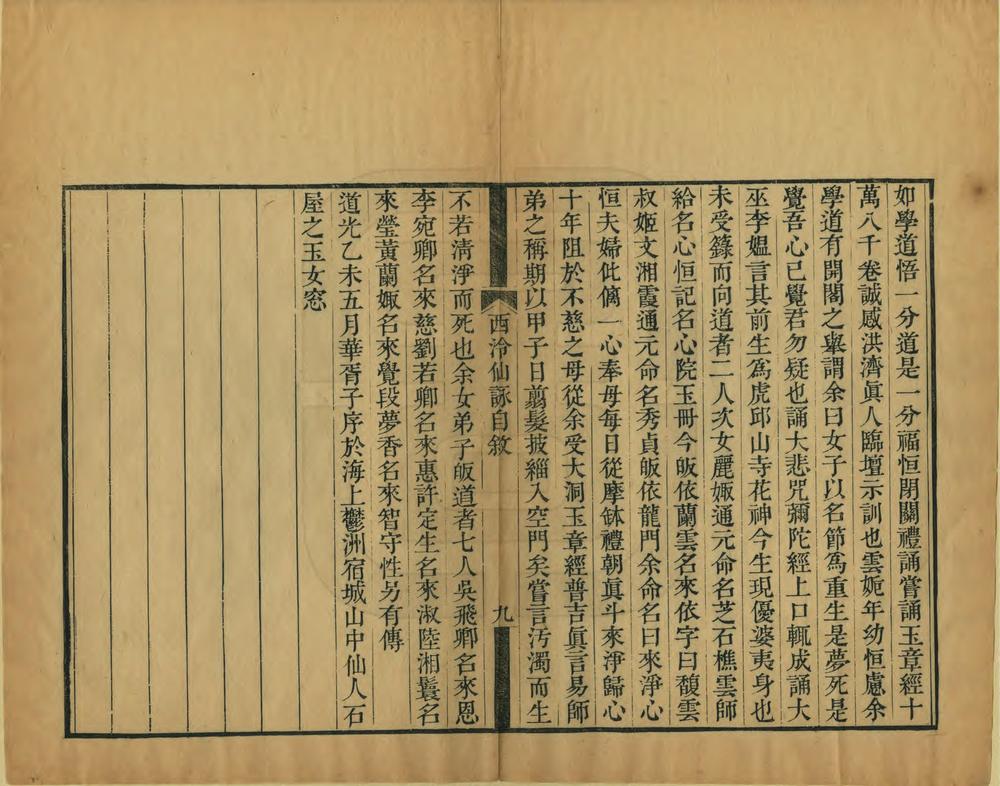 如學道悟一分道是一分福恒閉關禮誦嘗誦玉章經十
萬八千卷誠感洪濟眞人臨壇示訓也雲姬年幼恒慮余
學道有開閣之舉謂余曰女子以名節爲重生是夢死是
覺吾心已覺君勿疑也誦大悲咒彌陀經上口輒成誦大
巫李媼言其前生爲虎邱山寺花神今生現優婆夷身也
未受籙而向道者二人次女麗娵通元命名芝石樵雲師
給名心恒記名心院玉冊今皈依蘭雲名來依字曰馥雲
叔姬文湘霞通元命名秀貞皈依龍門余命名曰來淨心
恒夫婦仳離一心奉母每日從摩缽禮朝眞斗來淨歸心
十年阻於不慈之母從余受大洞玉章經普吉眞言易師
弟之稱期以甲子日翦髮披緇入空門矣嘗言汚濁而生
西泠仙詠自敘
九
不若清淨而死也余女弟子皈道者七人吳飛卿名來恩
李宛卿名來慈劉若卿名來惠許定生名來淑陸湘鬟名
來瑩黃蘭娵名來覺段夢香名來智守性另有傳
道光乙未五月華胥子序於海上鬱洲宿城山中仙人石
屋之玉女窓